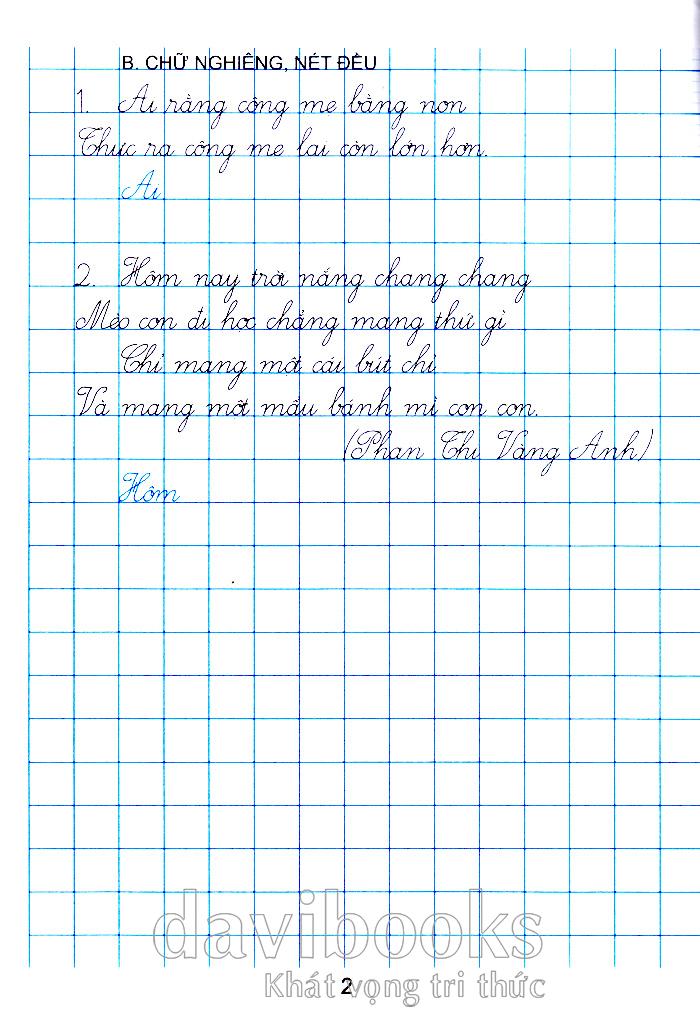 B. CHỮ NGHIÊNG, NÉT ĐỀU
1. Ai rằng công mẹ bằng non
Thực ra công mẹ lại còn lớn hơn.
Ai
2. Hôm nay trời nắng chang chang
Mèo con đi học chẳng mang thứ gì
Chỉ mang một cái bút chì
Và mang một mẩu bánh mì con con.
(Phan Thị Vàng Anh)
Hôm
davibooks
Khát vọng tri thức
2